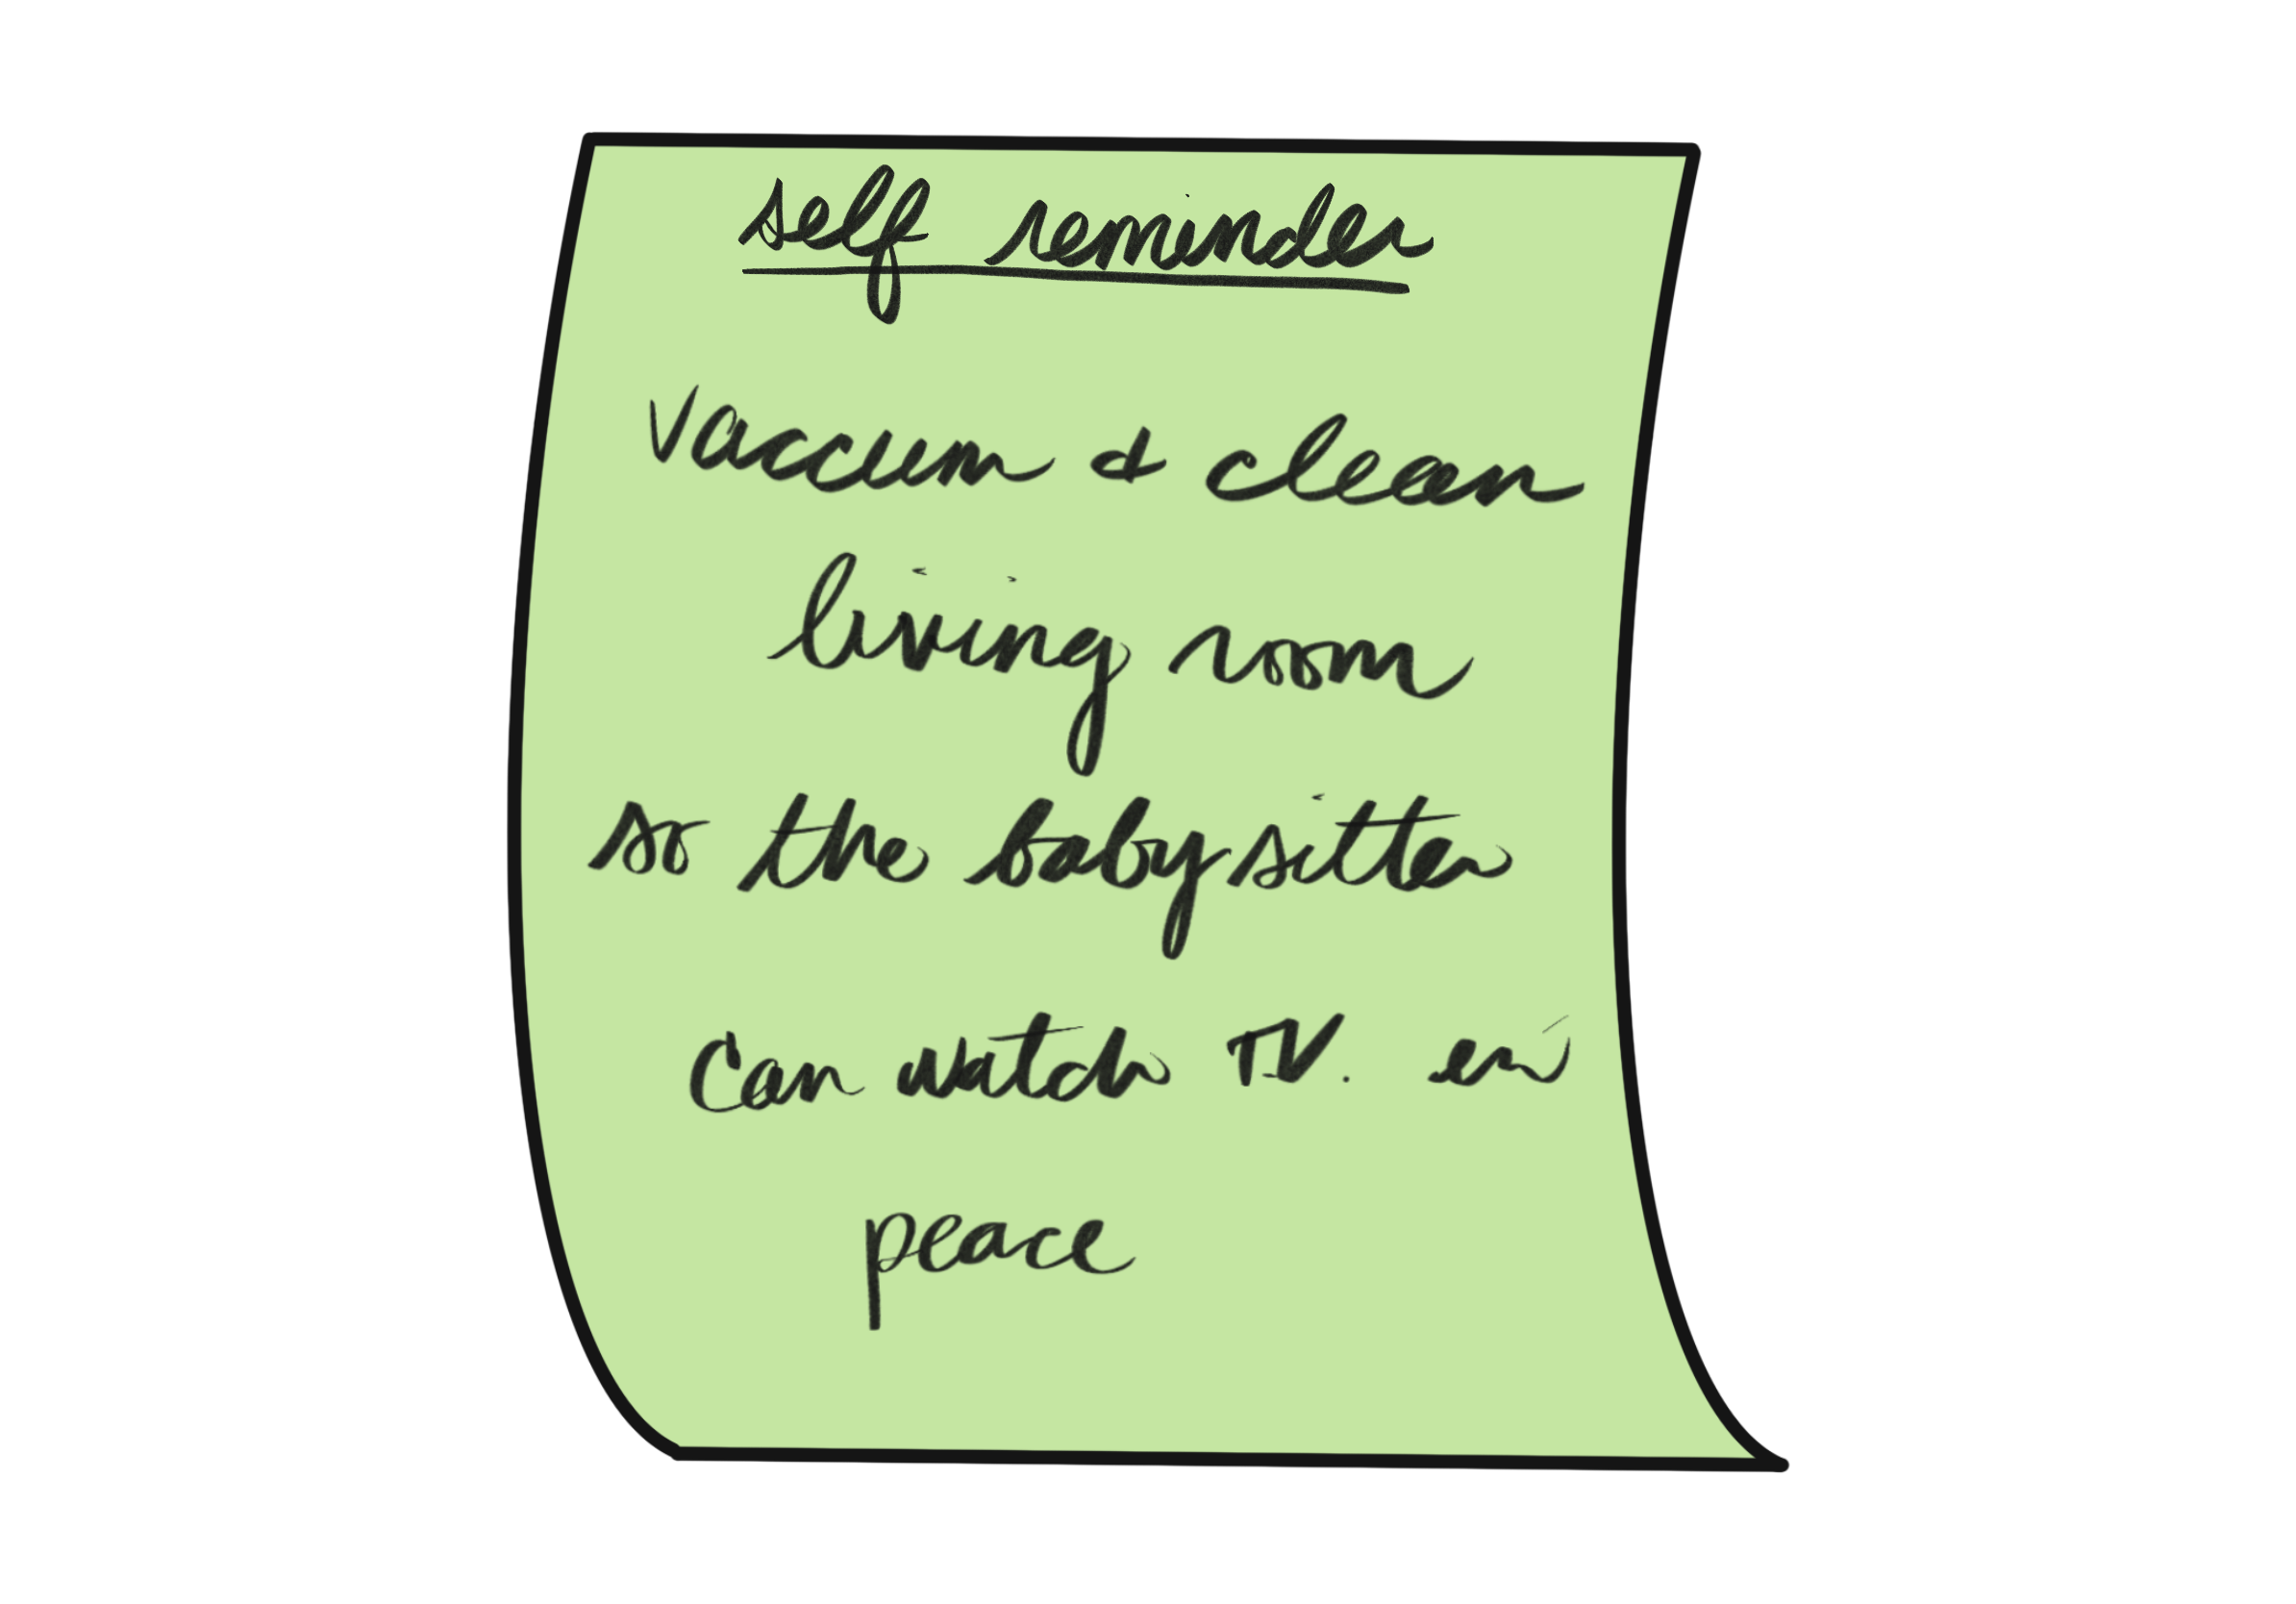 self reminder
vaccum & clean
living room
so the babysitter
can watch T.V. en
peace